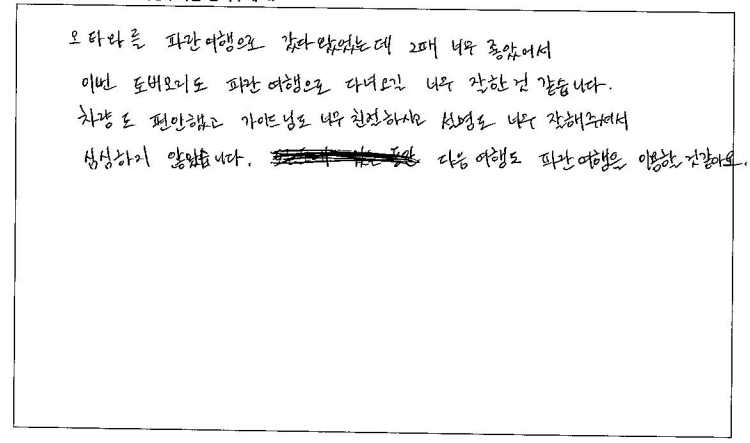 오타와를 파란여행으로 갔다왔었는데 그때 너무 좋았어서
이번 토버모리도 파란여행으로 다녀오길 너무 잘한 것 같습니다.
차량도 편안했고 가이드님도 너무 친절하시고 설명도 너무 잘해주셔서
심심하지 않았습니다. 다음 여행도 파란여행을 이용할 것같아요.